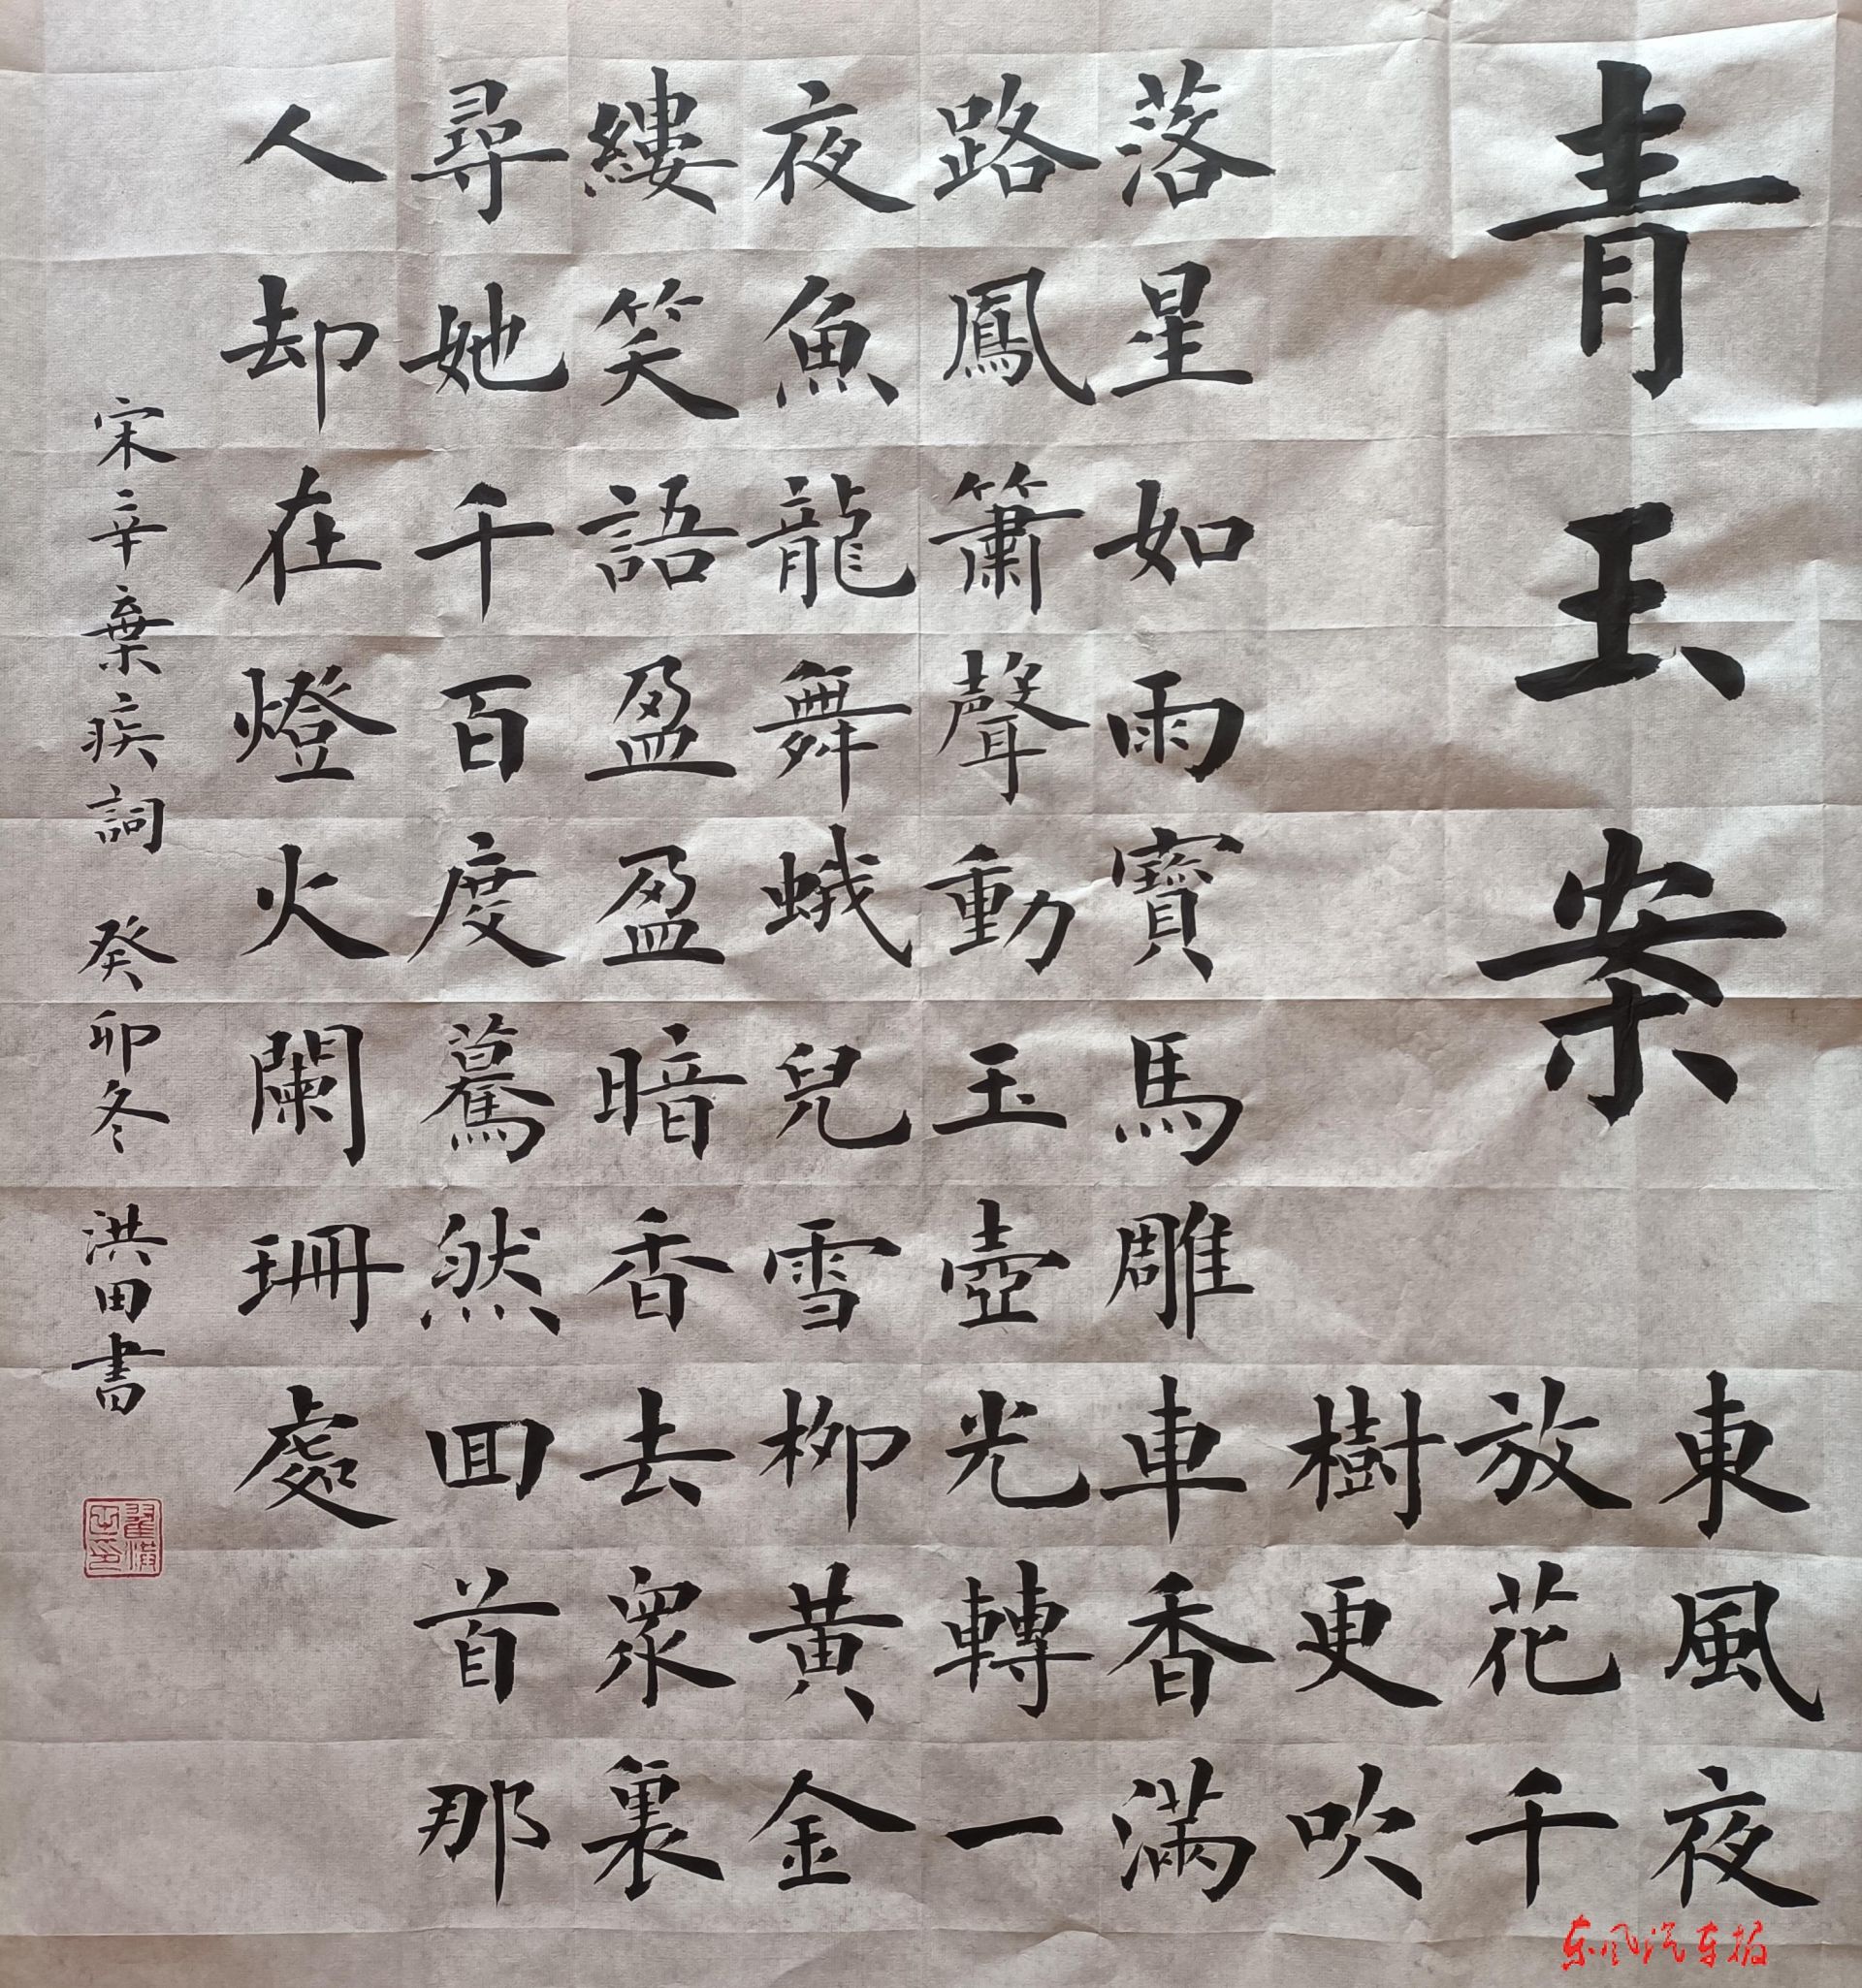 青玉案
東風夜
放花千
樹更吹
落星如雨寶馬雕車香滿
路鳳簫聲動玉壺光轉一
夜魚龍舞蛾兒雪柳黃金
縷笑語盈盈暗香去眾裏
尋她千百度驀然回首那
人却在燈火闌珊處
宋辛棄疾詞 癸卯冬 洪田書
东风汽车报